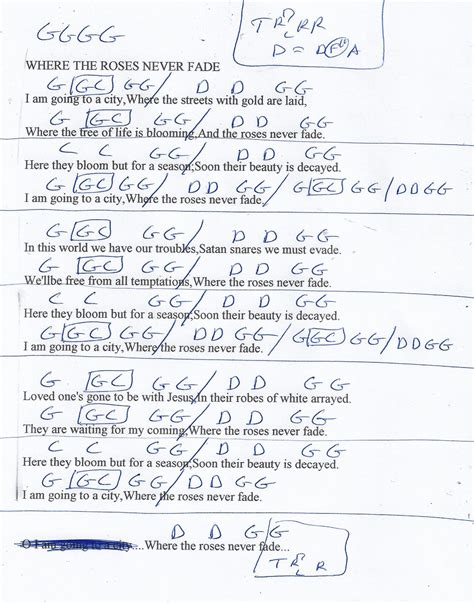 GGGG
TR?RR
L
D = DF#A
WHERE THE ROSES NEVER FADE
G GC GG / D D GG
I am going to a city,Where the streets with gold are laid,
G GC GG / D D GG
Where the tree of life is blooming,And the roses never fade.
C C GG / D D GG
Here they bloom but for a season;Soon their beauty is decayed.
G GC GG / D D GG / G GC GG / DDGG
I am going to a city,Where the roses never fade.
G GC GG / D D GG
In this world we have our troubles,Satan snares we must evade.
G GC GG / D D GG
We'llbe free from all temptations,Where the roses never fade.
C C GG / D D GG
Here they bloom but for a season;Soon their beauty is decayed.
G GC GG / D D GG / G GC GG / DDGG
I am going to a city,Where the roses never fade.
G GC GG / D D GG
Loved one's gone to be with Jesus,In their robes of white arrayed.
G GC GG / D D GG
They are waiting for my coming,Where the roses never fade.
C C GG / D D GG
Here they bloom but for a season;Soon their beauty is decayed.
G GC GG / D D GG
I am going to a city,Where the roses never fade.
D D G/G
O I am going to a city....Where the roses never fade...
TR?R
L